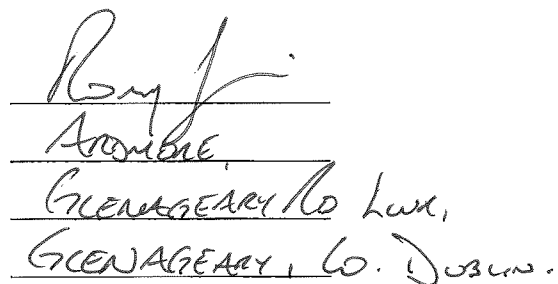 Ardmore,
Glenageary Rd Lwr,
Glenageary, Co. Dublin.